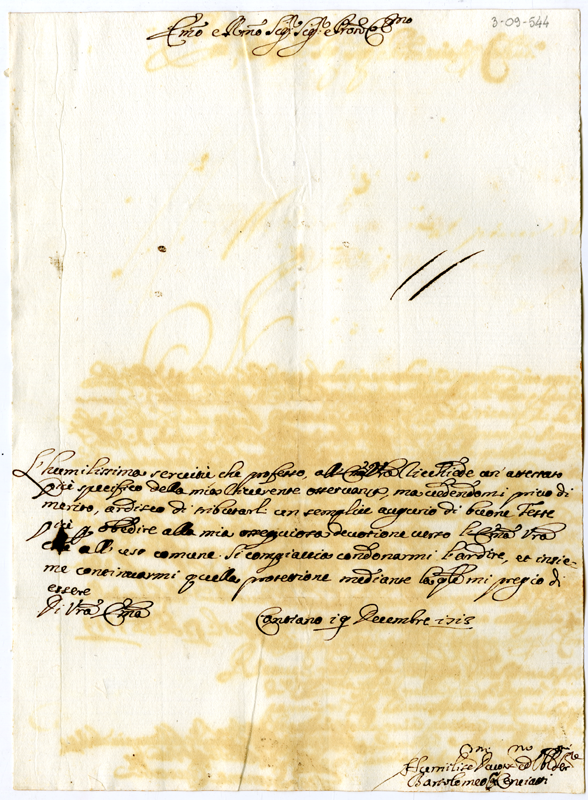 3-09-544
Emo e Rmo Sigr Sigr e Pron Colmo
L'humilissima servitù che professo, all'Emza Vra richiede un attestato
più specifico della mia riverente osservanza, ma vedendomi privo di
merito, ardisco di tributarli un semplice augurio di buone Feste
più p obedire alla mia ossequiosa devotione verso l'Emza Vra
che all'uso comune. Si compiaccia condonarmi l'ardire, et insie-
me continuarmi quella protezione mediante la qle mi pregio di
essere
Di Vra Emza
Canoiano 19 Decembre 1713
Humilissmo Devotmo ed Obblmo Serre
Bartolomeo